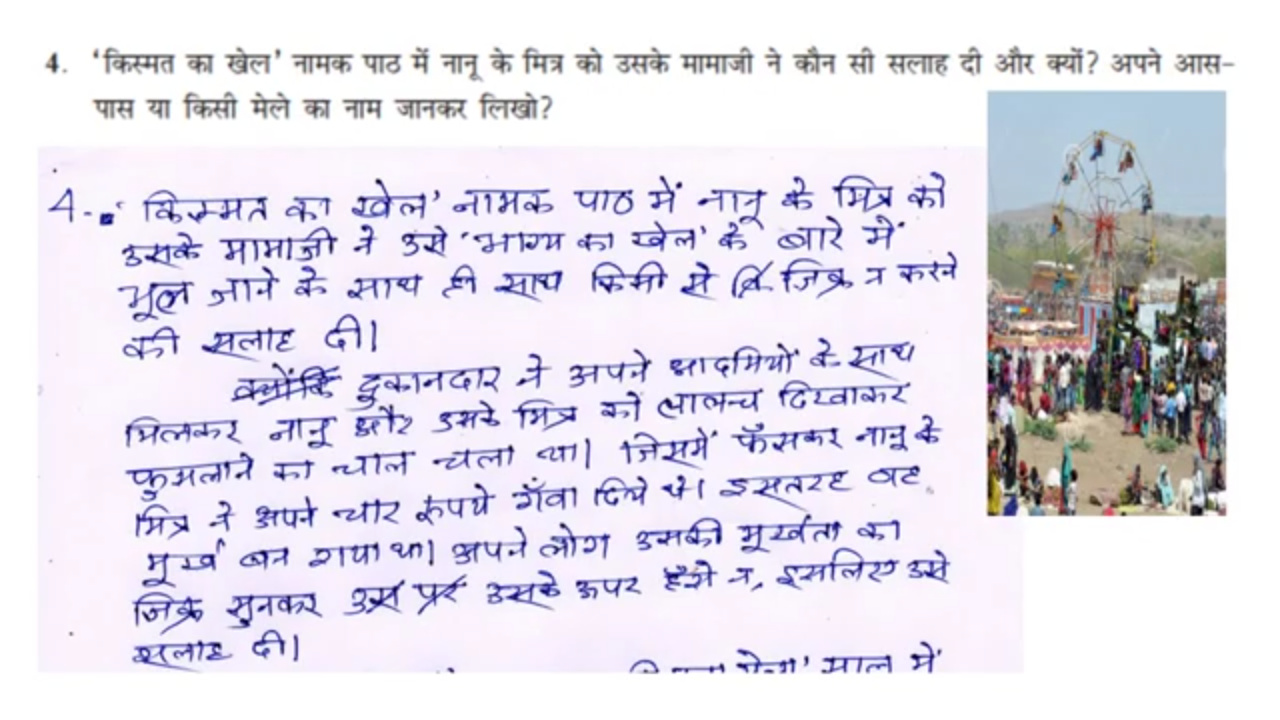 4. ‘किस्मत का खेल’ नामक पाठ में नानू के मित्र को उसके मामाजी ने कौन सी सलाह दी और क्यों? अपने आस-
पास या किसी मेले का नाम जानकर लिखो?
4. ‘किस्मत का खेल’ नामक पाठ में नानू के मित्र को
उसके मामाजी ने उसे ‘भाग्य का खेल’ के बारे में
भूल जाने के साथ ही साथ किसी से जिक्र न करने
की सलाह दी।
क्योंकि दुकानदार ने अपने आदमियों के साथ
मिलकर नानू और उसके मित्र को लालच दिखाकर
फुसलाने का चाल चला था। जिसमें फँसकर नानू के
मित्र ने अपने चार रुपये गँवा दिये थे। इसतरह वह
मूर्ख बन गया था। अपने लोग उसकी मूर्खता का
जिक्र सुनकर उस पर उसके ऊपर हँसे न, इसलिए उसे
सलाह दी।
साल में